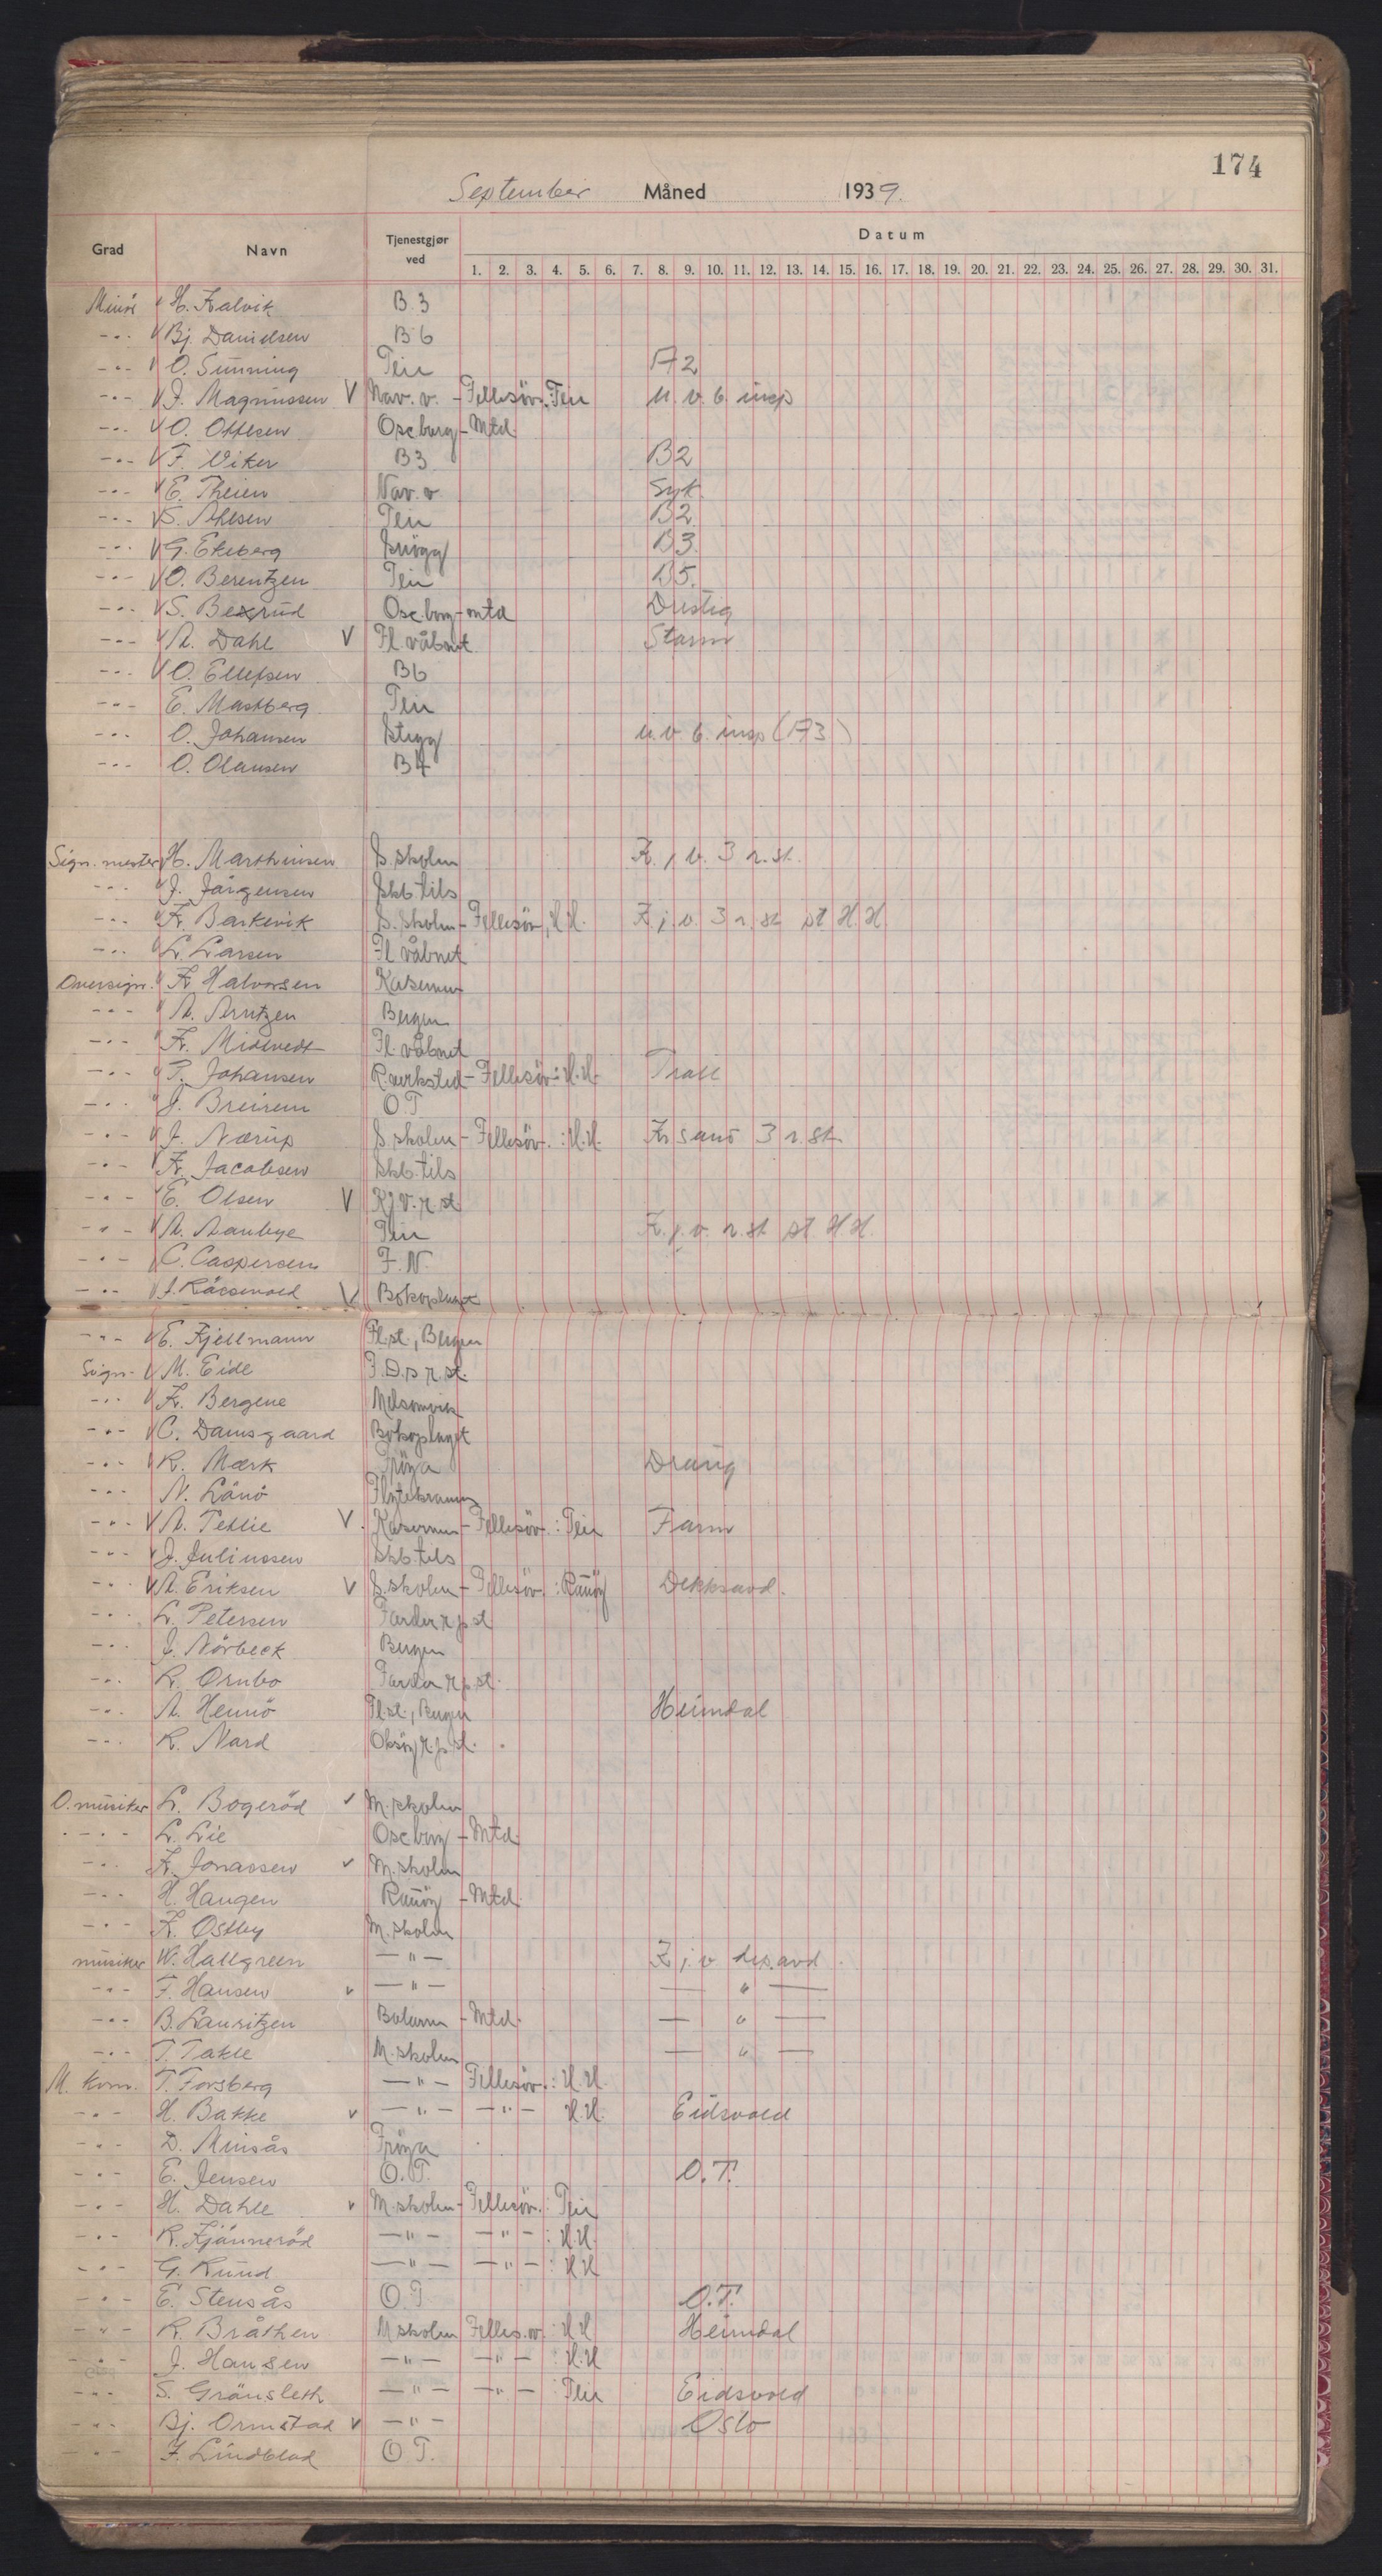 174
September Måned 1939.
Grad Navn Tjenestgjør ved Datum
1. 2. 3. 4. 5. 6. 7. 8. 9. 10. 11. 12. 13. 14. 15. 16. 17. 18. 19. 20. 21. 22. 23. 24. 25. 26. 27. 28. 29. 30. 31.
Minör H. Kalvik B.3
-"- Bj. Danielsen B6
-"- O. Sünning Teie A2
-"- J. Magnussen V Nav. v. - Fellesöv. Teie u.v.b. insp
-"- O. Ottesen Osc.borg - Mtd.
-"- F. Viker B3 B2
-"- E. Theien Nav. v. Syk.
-"- S. Ahlsen Teie B2
-"- G. Ekeberg Snögg B3.
-"- O. Berentzen Teie B5.
-"- S. Bexrud Osc.borg - mtd Dristig
-"- A. Dahl V Fl.våbnet Storm
-"- O. Ellefsen B6
-"- E. Mastberg Teie
-"- O. Johansen Stegg u.v.b. insp (A3)
-"- O. Olausen B4
Sign. mester H. Marthinsen S. skolen K.j.v. 3 r.st.
-"- J. Jörgensen Skb tils
-"- Kr. Barkevik S. skolen - Fellesöv, H.H. K.j.v. 3 r.st pt H.H.
-"- L. Larsen Fl våbnet
Oversign. Kr Halvorsen Kasernen
-"- A. Arntzen Bergen
-"- Kr. Midtvedt Fl. våbnet
-"- P. Johansen R.verksted - Fellesöv: H.H. Troll
-"- J. Breirem O.T
-"- J. Nærup S. skolen - Fellesöv. : H.H. Kr sand 3 r.st.
-"- Kr. Jacobsen Skb. tils
-"- E. Olsen V Kj.v. r.st
-"- A. Aanbye Teie K.j.v. r.st pt H.H.
-"- C. Caspersen F.N.
-"- V
-"- E. Kjellmann Fl.st., Bergen
Sign. M. Eide
-"- Kr. Bergene Melsomvik
-"- C. Damsgaard
-"- R. Mærk Fröya Draug
-"- N. Lånö
-"- A. Tetlie V. Kasernen - Fellesöv. : Teie Farm
-"- J. Juliussen Skb. tils
-"- A. Eriksen V S. skolen - Fellesöv. : Rauöy Dekksavd.
-"- L. Petersen Færder r.p.st
-"- J. Nörbeck Bergen
-"- R. Ornbo Færder r.p.st.
-"- A. Hennö Fl.st., Bergen Heimdal
-"- R. Nard Oksöy r.p.st.
O. musiker L. Bogeröd V M. skolen
-"- L. Lie Osc borg - Mtd.
-"- Kr. Jonassen V M. skolen
-"- H. Haugen Rauöy - Mtd.
-"- K. Østby M. skolen
musiker W. Hallgreen -"- K.j.v dep. avd.
-"- F. Hansen V -"- -"-
-"- B. Lauritzen Bolærne - Mtd. -"-
-"- T. Takle M. skolen -"-
M. korn. T. Forsberg -"- Fellesöv. : H.H.
-"- H. Bakke V -"- -"- H.H. Eidsvold
-"- D. Minsås Fröya
-"- E. Jensen O.T. O.T.
-"- H. Dahle V M. skolen - Fellesöv. : Teie
-"- R. Kjänneröd -"- -"- : H.H.
-"- G. Rund -"- -"- : H.H
-"- E. Stensås O.T O.T.
-"- R. Bråthen M skolen Felles.öv. : H.H Heimdal
-"- J. Hansen -"- -"- : H.H
-"- S. Grönsleth -"- -"- : Teie Eidsvold
-"- Bj. Ormstad V -"- Oslo
-"- F. Lindblad O.T.